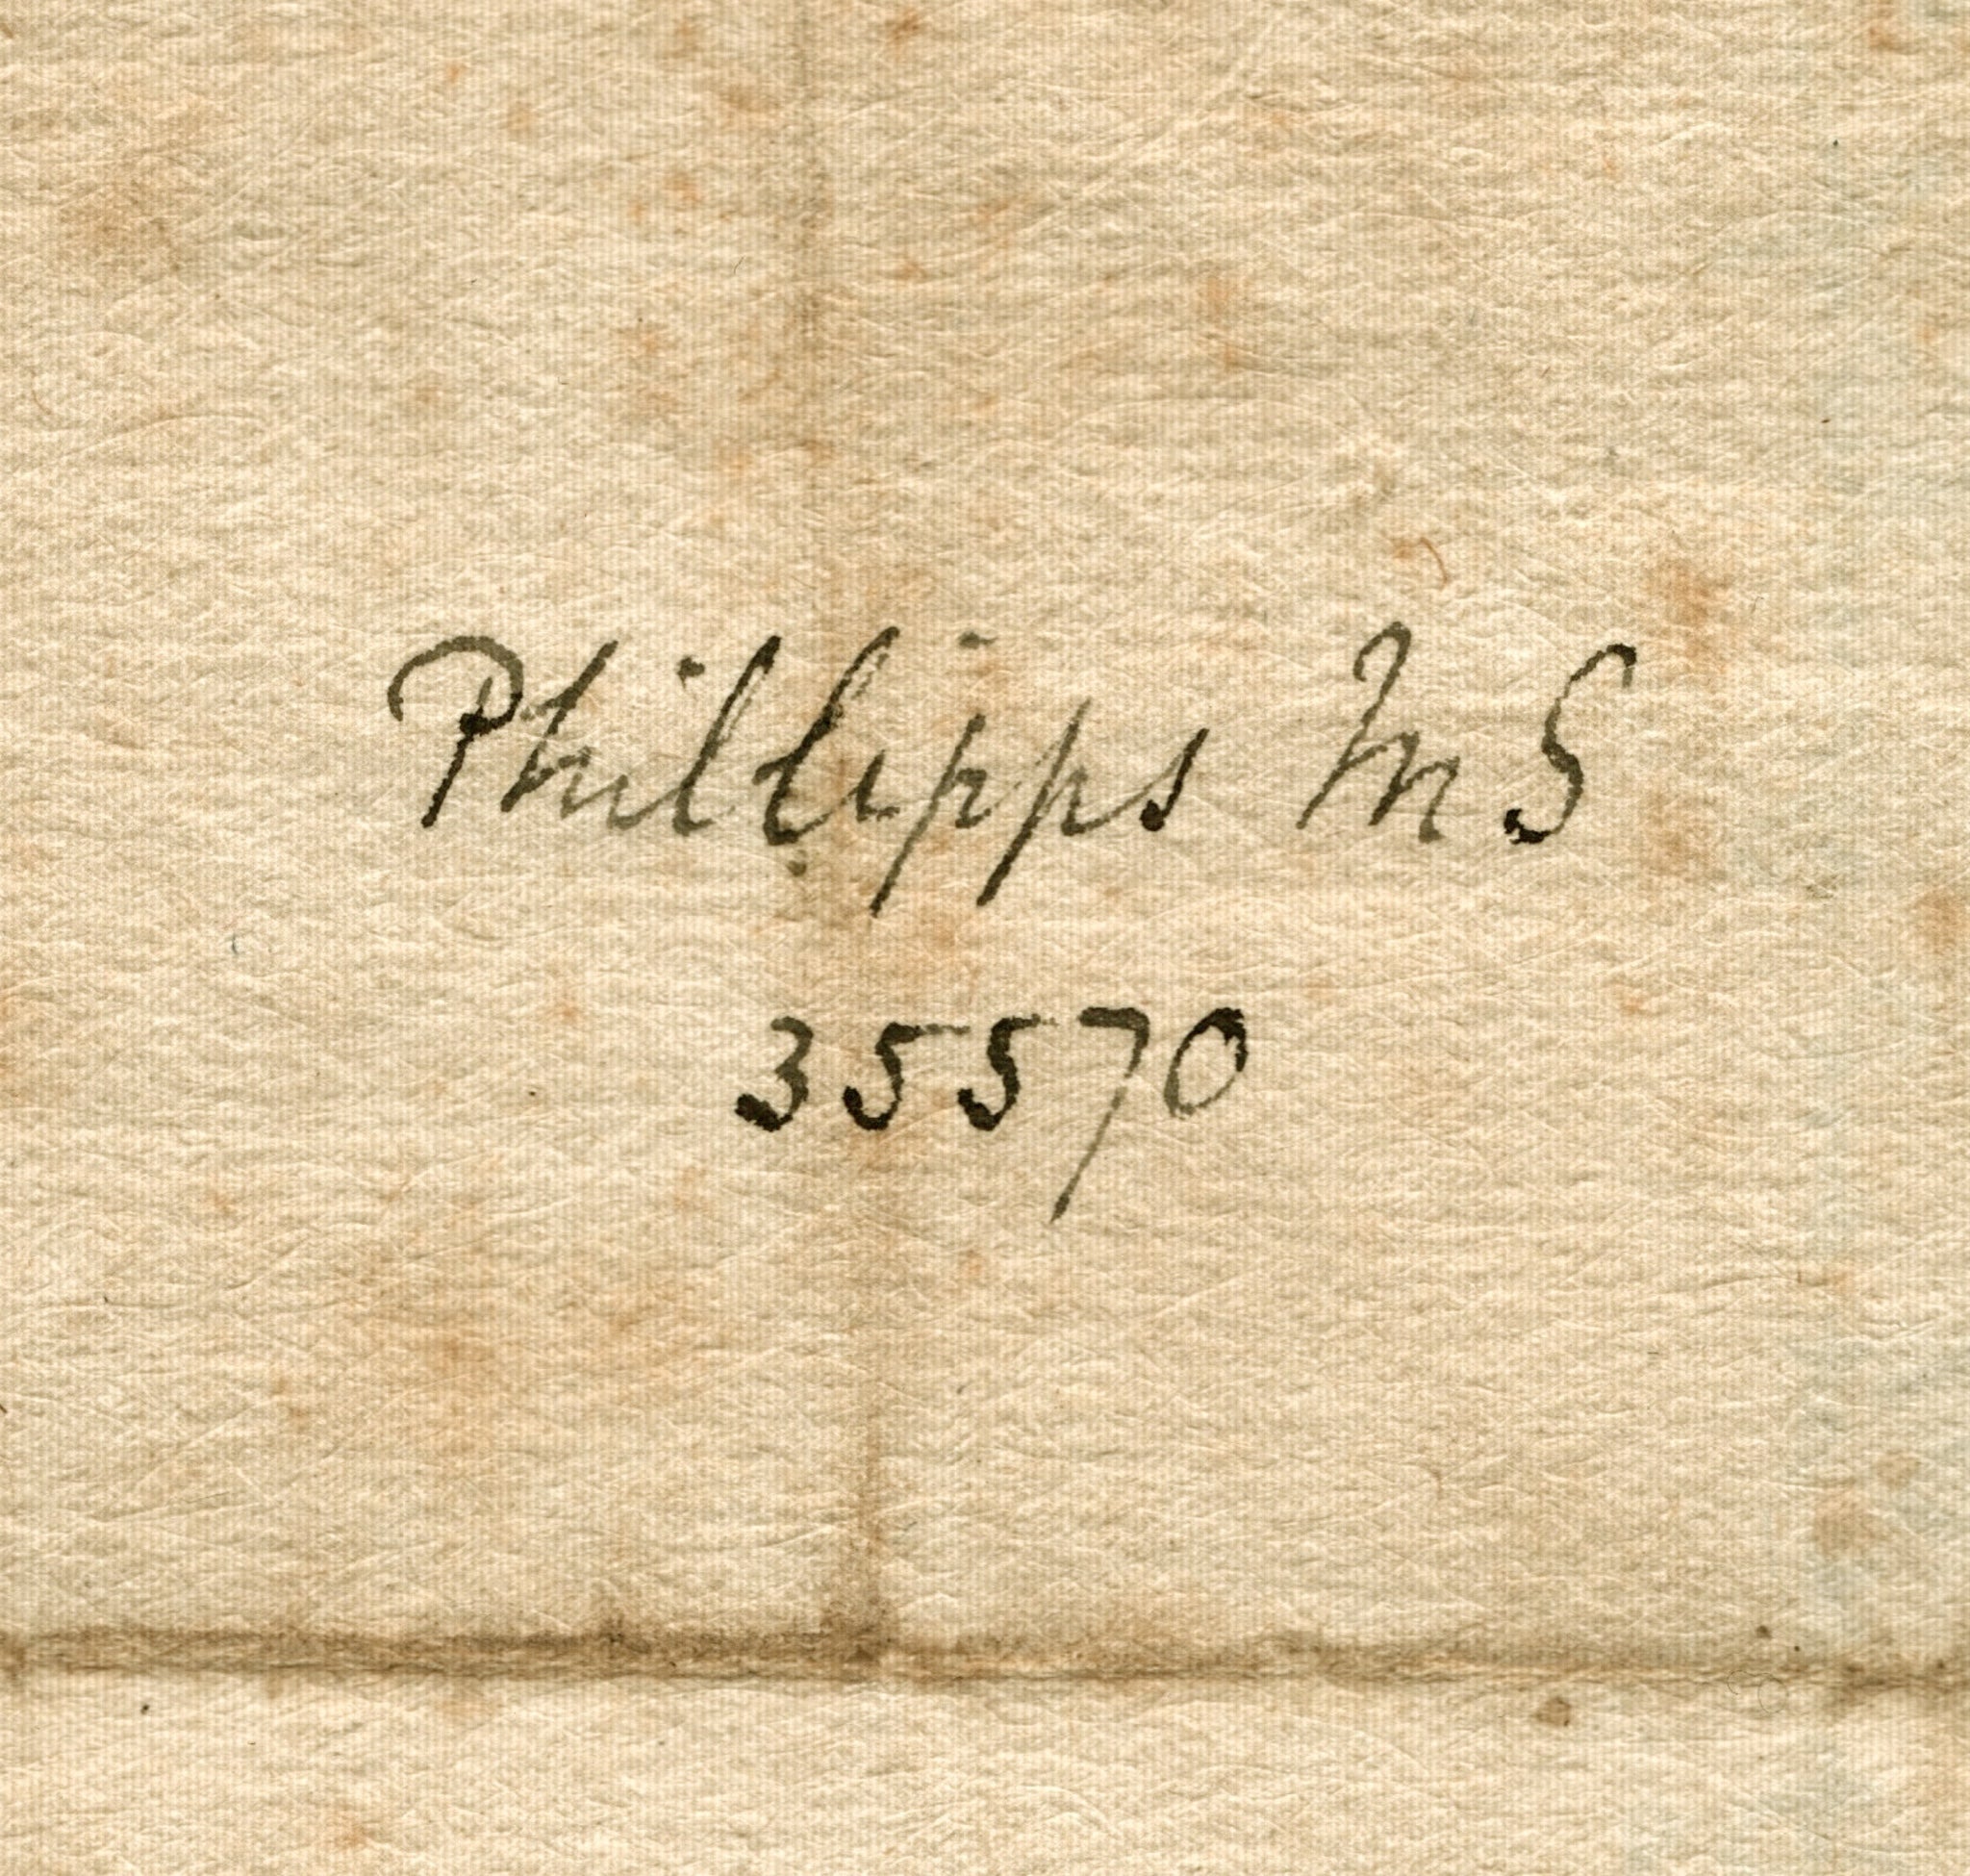 Phillipps MS
35570